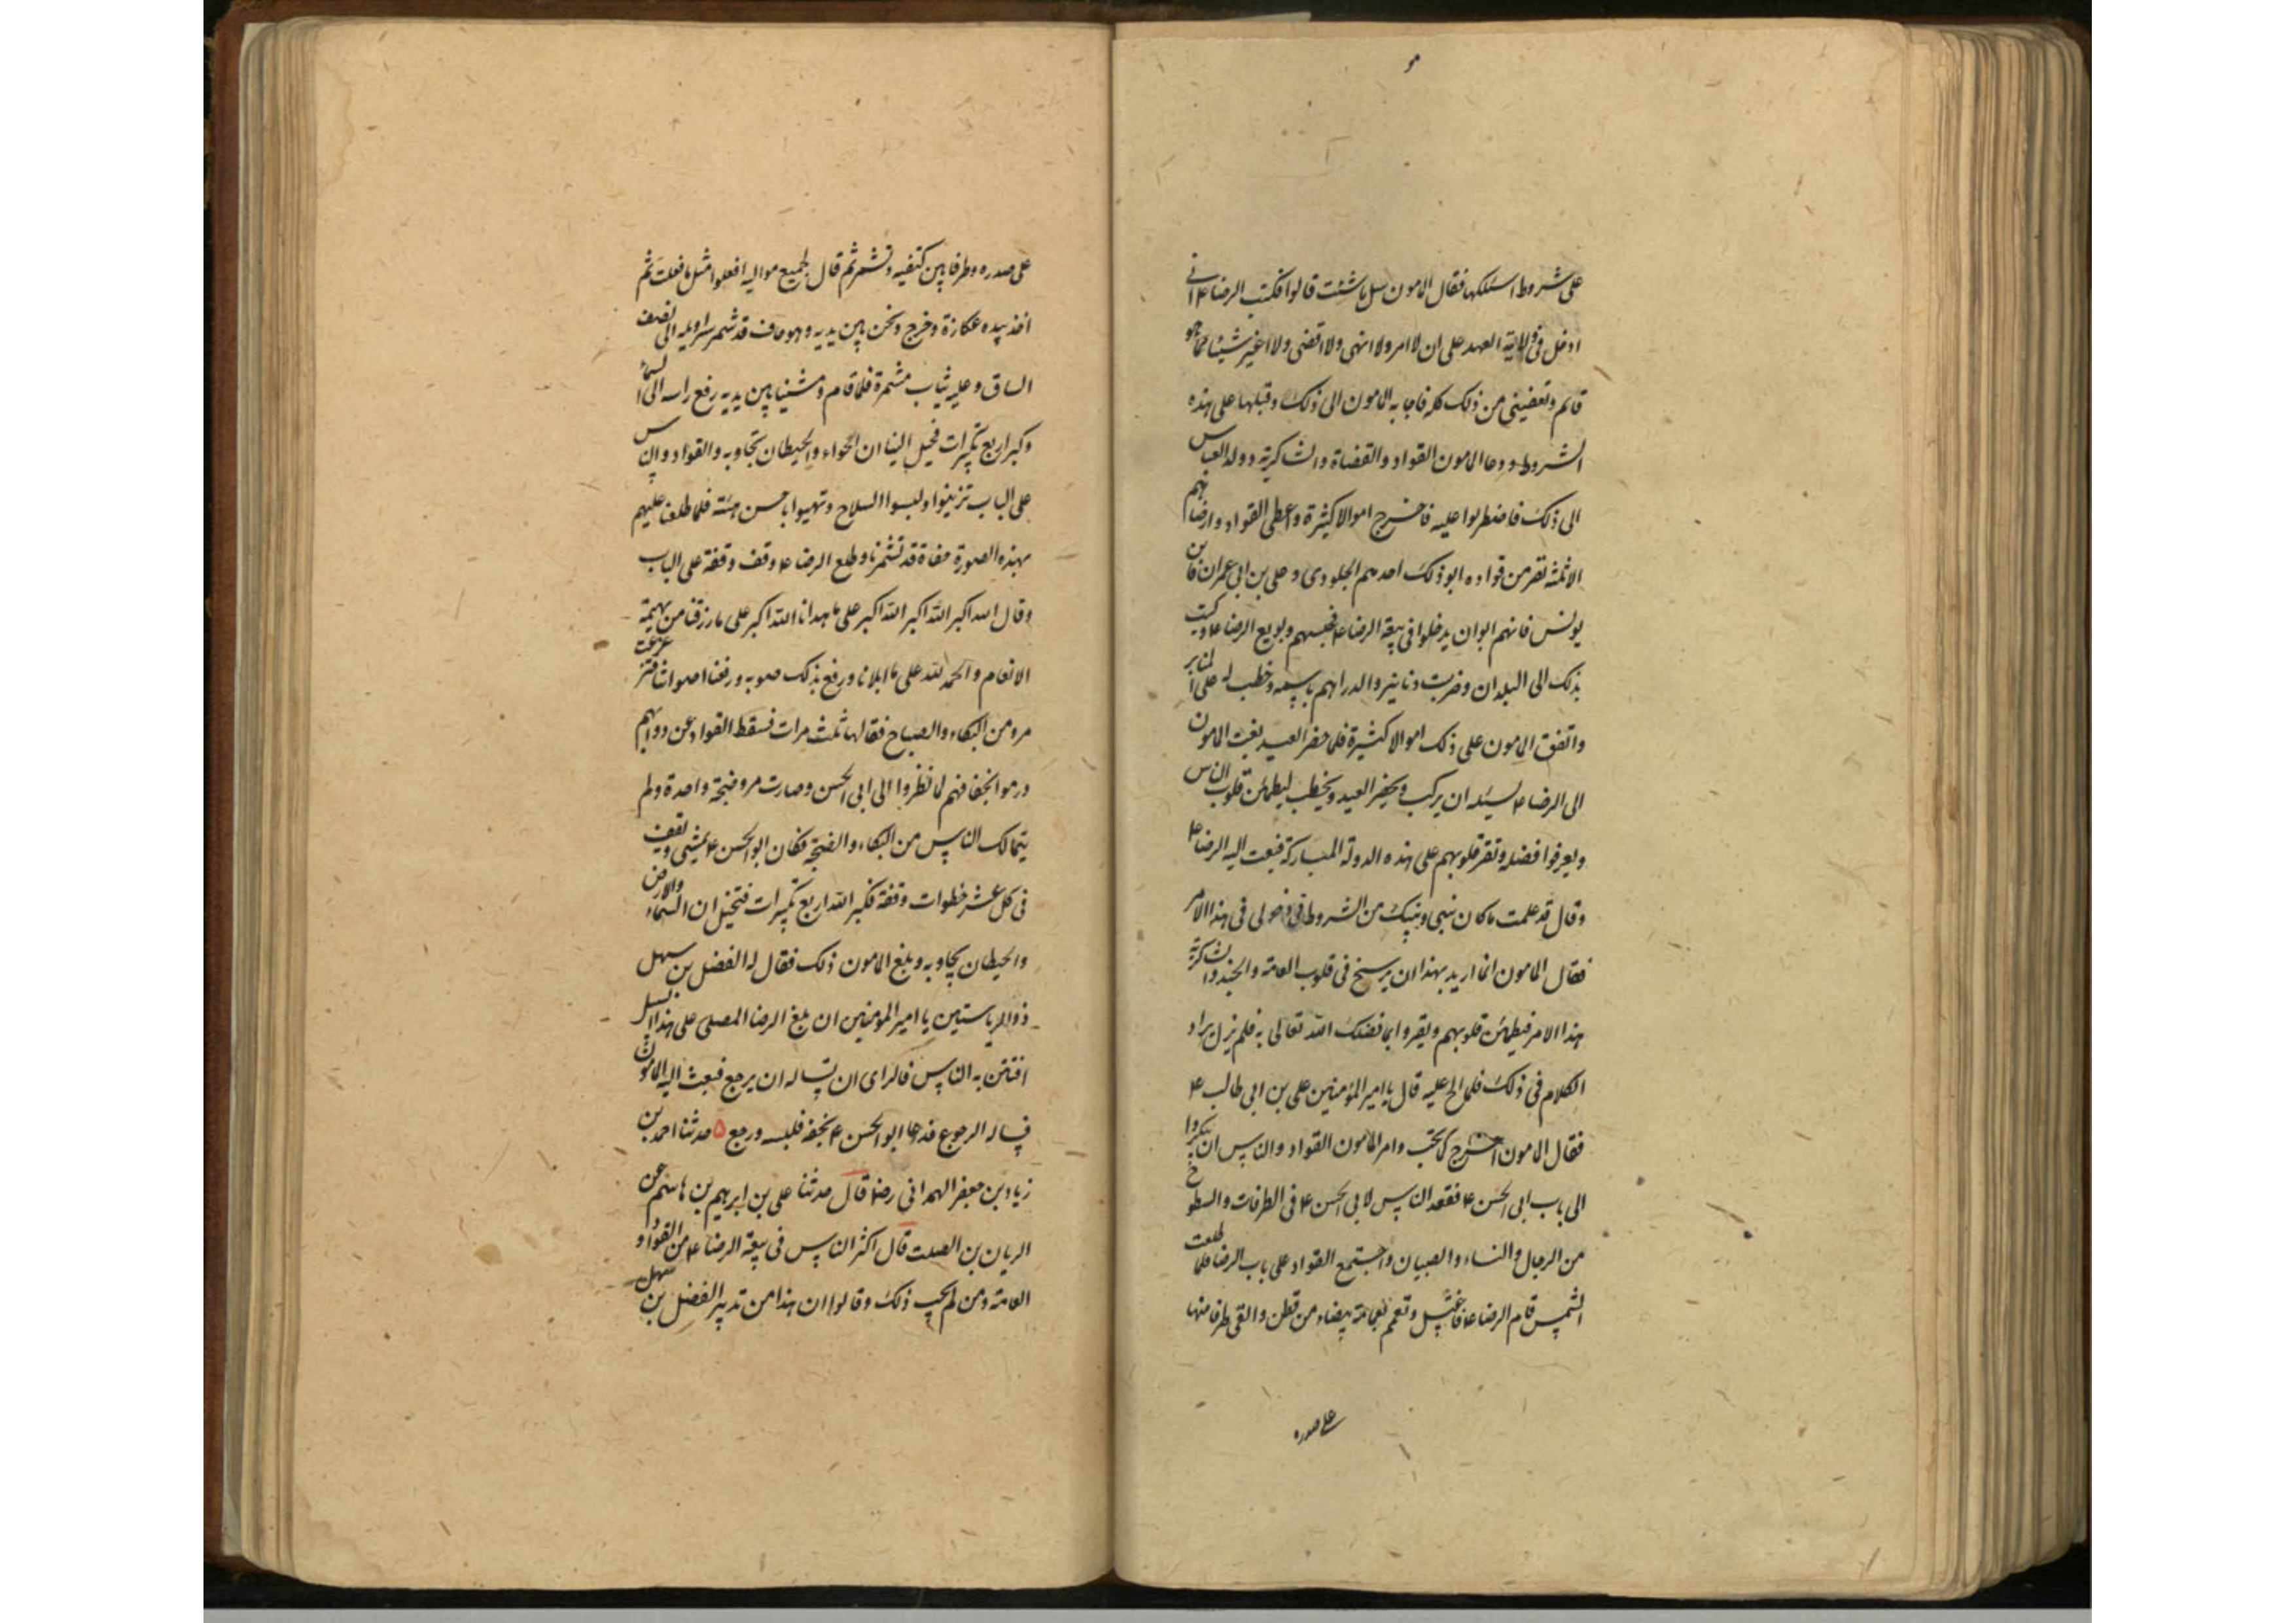 على شروط اسئلكها فقال المامون سل ما شئت قالوا فكتب الرضا ع انى
ادخل فى ولاية العهد على ان لا امر ولا انهى ولا اقضى ولا اغير شيئا مما هو
قائم وتعفينى من ذلك كله فاجابه المامون الى ذلك وقبلها على هذه
الشروط ودعا المامون القواد والقضاة والشاكرية وولد العباس
الى ذلك فاضطربوا عليه فاخرج اموالا كثيرة واعطى القواد وارضاهم
الا ثلثة نفر من قواده ابو ذلك احدهم الجلودى وعلى بن ابى عمران وابن
يونس فانهم ابوا ان يدخلوا فى بيعة الرضا ع فحبسهم وبويع الرضا ع وكتب
بذلك الى البلدان وضربت دنانير والدراهم باسمه وخطب له على المنابر
وانفق المامون على ذلك اموالا كثيرة فلما حضر العيد بعث المامون
الى الرضا ع يسئله ان يركب ويحضر العيد ويخطب ليطمئن قلوب الناس
ويعرفوا فضله وتقر قلوبهم على هذه الدولة المباركة فبعث اليه الرضا ع
وقال قد علمت ما كان بينى وبينك من الشروط فى دخولى فى هذا الامر
فقال المامون انما اريد بهذا ان يرسخ فى قلوب العامة والجند والشاكرية
هذا الامر فيطمئن قلوبهم ويقروا بما فضلك الله تعالى به فلم يزل يراد
الكلام فى ذلك فلما الح عليه قال يا امير المؤمنين على بن ابى طالب ع
فقال المامون اخرج كما تحب وامر المامون القواد والناس ان يبكروا
الى باب ابى الحسن ع فقعد الناس لابى الحسن ع فى الطرقات والسطوح
من الرجال والنساء والصبيان واجتمع القواد على باب الرضا فلما طلعت
الشمس قام الرضا ع فاغتسل وتعمم بعمامة بيضاء من قطن والقى طرفا منها
على صدره
على صدره وطرفا بين كتفيه وتشمر ثم قال لجميع مواليه افعلوا مثل ما فعلت ثم
اخذ بيده عكازة وخرج ونحن بين يديه وهو حاف قد شمر سراويله الى نصف
الساق وعليه ثياب مشمرة فلما قام ومشينا بين يديه رفع راسه الى السماء
وكبر اربع تكبيرات فخيل الينا ان الهواء والحيطان تجاوبه والقواد والناس
على الباب تزينوا ولبسوا السلاح وتهيوا باحسن هيئة فلما طلعنا عليهم
بهذه الصورة حفاة قد تشمرنا وطلع الرضا ع وقف وقفة على الباب
وقال الله اكبر الله اكبر الله اكبر على ما هدانا الله اكبر على ما رزقنا من بهيمة
الانعام والحمد لله على ما ابلانا ورفع بذلك صوته ورفعنا اصواتنا فتزعزعت
مرو من البكاء والصياح فقالها ثلث مرات فسقط القواد عن دوابهم
ورموا بخفافهم لما نظروا الى ابى الحسن وصارت مرو ضجة واحدة ولم
يتمالك الناس من البكاء والضجة فكان ابو الحسن ع يمشى ويقف
فى كل عشر خطوات وقفة فكبر الله اربع تكبيرات فتخيل ان السماء والارض
والحيطان تجاوبه وبلغ المامون ذلك فقال له الفضل بن سهل
ذو الرياستين يا امير المؤمنين ان بلغ الرضا المصلى على هذا السبيل
افتتن به الناس فالراى ان تساله ان يرجع فبعث اليه المامون
فساله الرجوع فدعا ابو الحسن ع بخفه فلبسه ورجع ۵ حدثنا احمد بن
زياد بن جعفر الهمدانى رضه قال حدثنا على بن ابرهيم بن هاشم عن
الريان بن الصلت قال اكثر الناس فى بيعة الرضا ع من القواد و
العامة ومن لم يحب ذلك وقالوا ان هذا من تدبير الفضل بن سهل